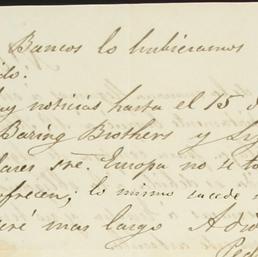 Bancos lo hubieramos
ido.
ay noticias hasta el 15 d
Baring Brothers y Ly
lares sre. Europa no se to
ofrecen; lo mismo sucede
eré mas largo Adio
Ped